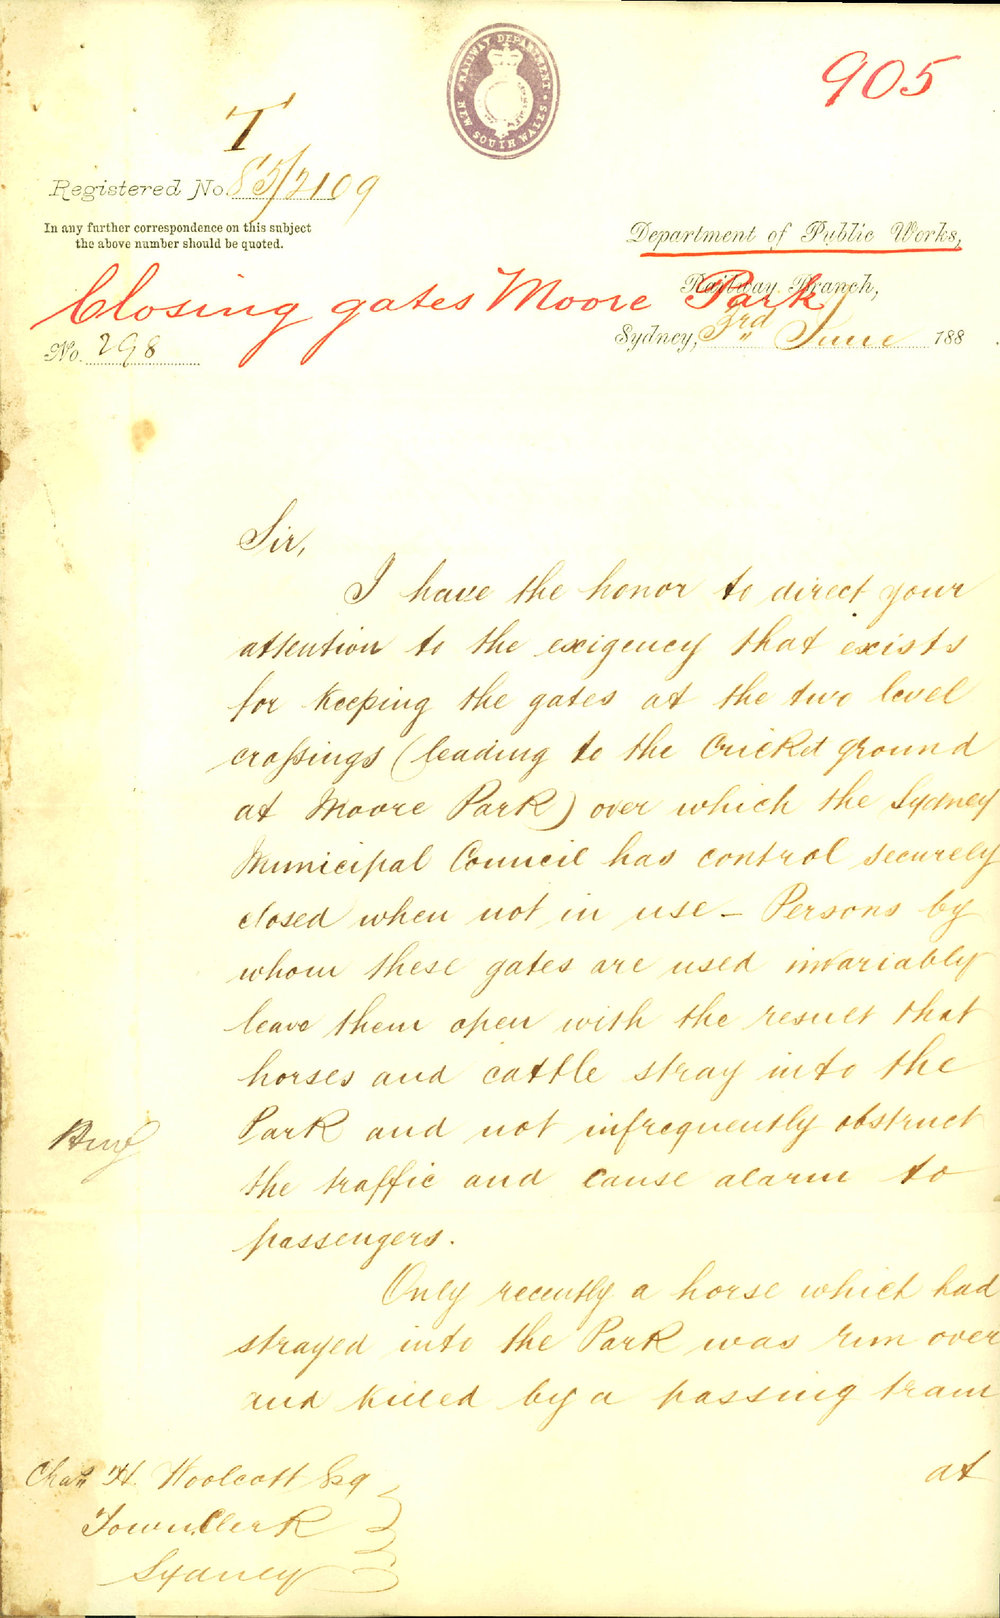 RAILWAY DEPARTMENT
NEW SOUTH WALES
905
T
Registered No. 83/2109
In any further correspondence on this subject
the above number should be quoted.
Department of Public Works,
Railway Branch,
Closing gates Moore Park
Sydney, 3rd June 188
No. 298
Sir,
I have the honor to direct your
attention to the exigency that exists
for keeping the gates at the two level
crossings (leading to the Cricket ground
at Moore Park) over which the Sydney
Municipal Council has control securely
closed when not in use – Persons by
whom these gates are used invariably
leave them open with the result that
horses and cattle stray into the
Park and not infrequently obstruct
the traffic and cause alarm to
passengers.
Only recently a horse which had
strayed into the Park was run over
and killed by a passing tram
at
Chas H. Woolcott Esq
Town Clerk
Sydney